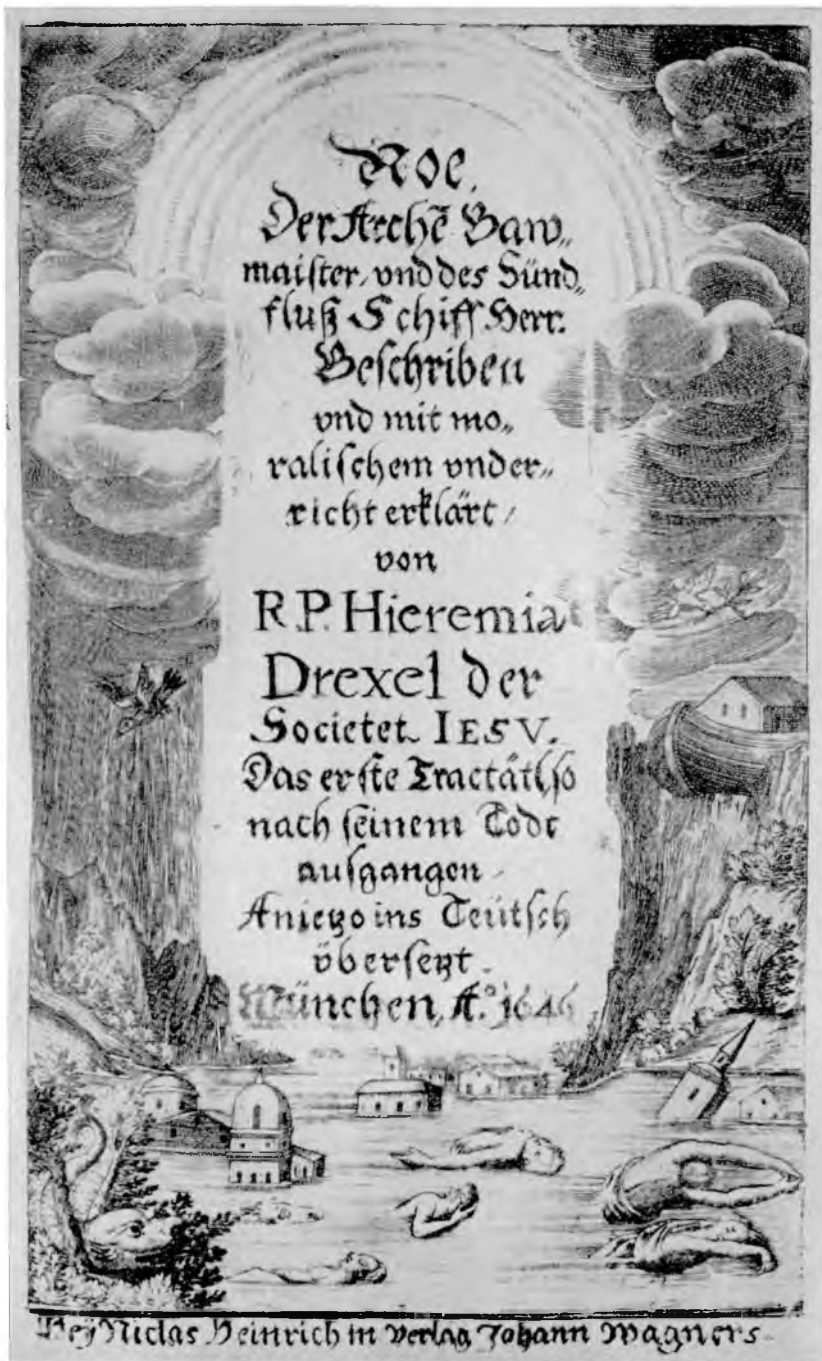 Noe,
Der Archē Baw„
maister, vnd des Sünd„
fluß Schiff Herr.
Beschriben
vnd mit mo„
ralischem vnder„
richt erklärt /
von
R.P. Hieremia
Drexel der
Societet IESV.
Das erste Tractätl, so
nach seinem Todt
ausgangen
Aniezo ins Teütsch
übersezt.
München, Aº. 1646
Bey Niclas Heinrich in Verlag Johann Wagners.